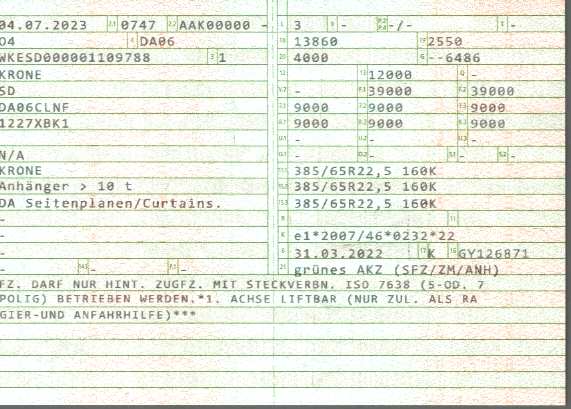 04.07.2023 0747 AAK00000 - 3 - -/- -
04 DA06 13860 2550
WKESD000001109788 1 4000 --6486
KRONE 12000 -
SD - 39000 39000
DA06CLNF 9000 9000 9000
1227XBK1 9000 9000 9000
- - -
N/A - - - -
KRONE 385/65R22,5 160K
Anhänger > 10 t 385/65R22,5 160K
DA Seitenplanen/Curtains. 385/65R22,5 160K
-
- e1*2007/46*0232*22
- 31.03.2022 K GY126871
- - - grünes AKZ (SFZ/ZM/ANH)
FZ. DARF NUR HINT. ZUGFZ. MIT STECKVERBN. ISO 7638 (5-OD. 7
POLIG) BETRIEBEN WERDEN.*1. ACHSE LIFTBAR (NUR ZUL. ALS RA
GIER-UND ANFAHRHILFE)***